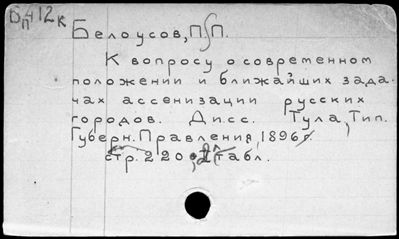 Белоусов, П. П.
К вопросу о современном
положении и ближайших зада-
чах ассенизации русских
городов. Дисс. Тула, Тип.
Губерн. Правления, 1896 г.
стр. 220, 2 табл.